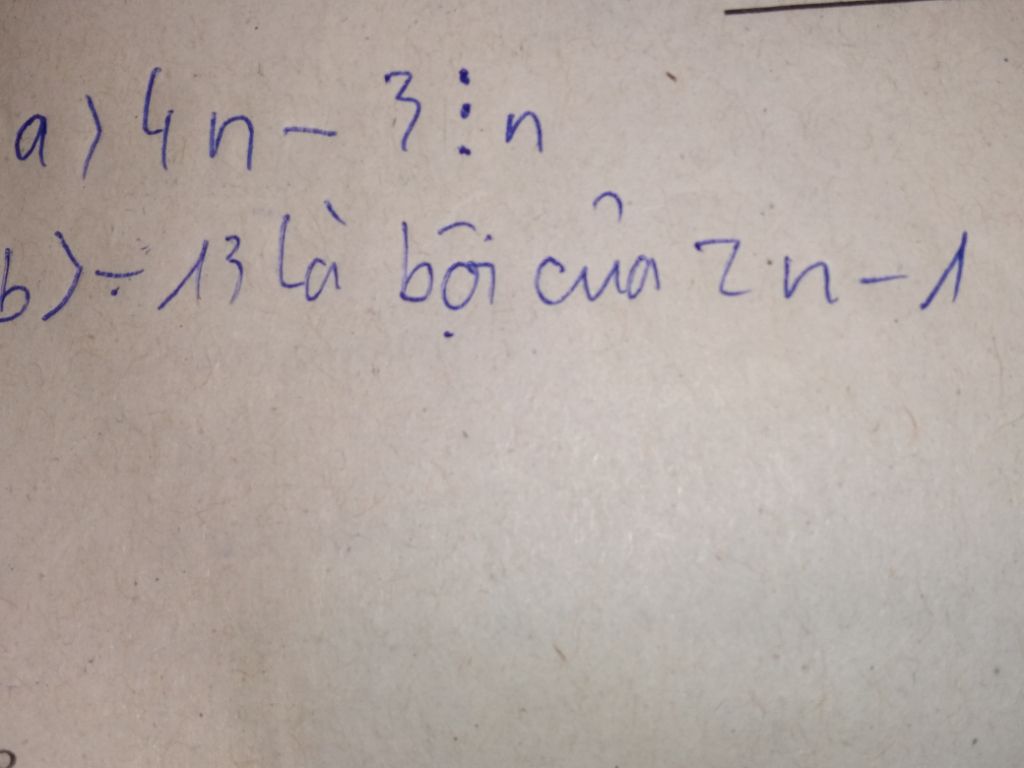 a) 4n - 3 ⋮ n
b) - 13 là bội của 2n - 1